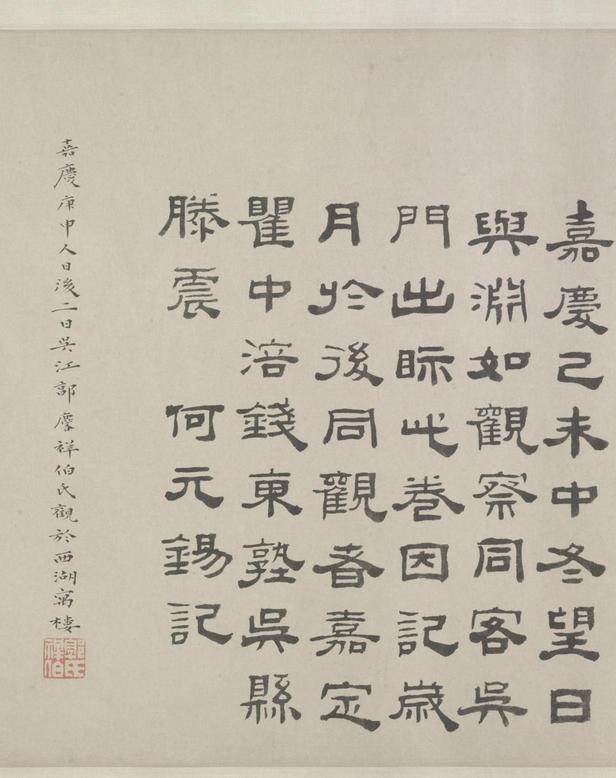 嘉慶己未中冬望日
與淵如觀察同客吳
門出眎此卷因記歲
月於後同觀者嘉定
瞿中溶錢東塾吳縣
滕震 何元錫記
嘉慶庚申人日後二日吳江郭麐祥伯氏觀於西湖寓樓
郭氏
祥伯